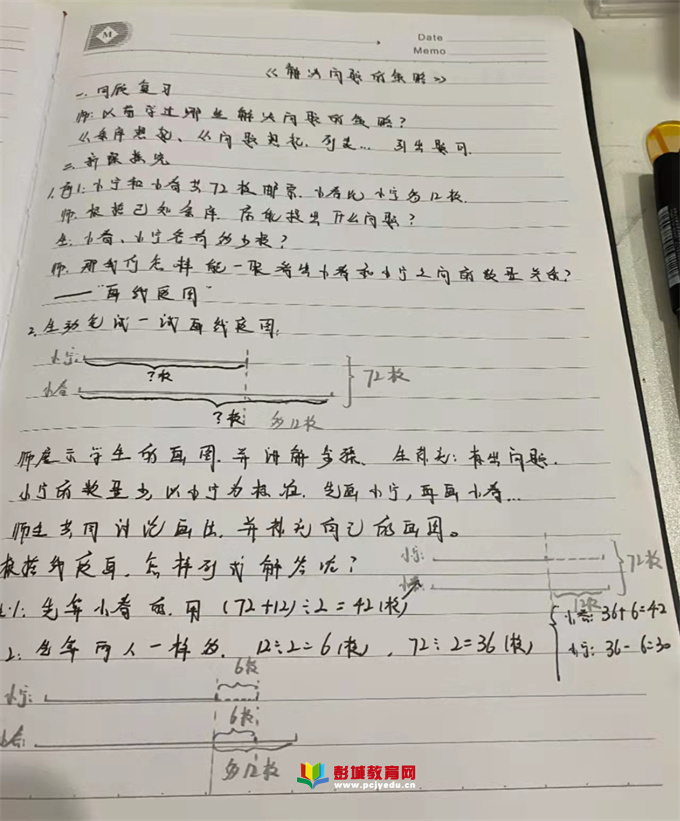 M
Date
Memo
《解决问题的策略》
一、回顾复习
师:以前学过哪些解决问题的策略?
从条件想起、从问题想起、列表… 引出题目.
二、新课探究
1.例1:小宁和小春共72枚邮票.小春比小宁多12枚.
师:根据已知条件 你能提出什么问题?
生:小春、小宁各有多少枚?
师:那我们怎样能一眼看出小春和小宁之间的数量关系?
——"画线段图"
2.生动笔试一试画线段图.
小宁:
?枚
72枚
小春
?枚 多12枚
师展示学生的画图.并讲解步骤. 生补充:标出问题.
小宁的数量少,以小宁为标准.先画小宁,再画小春…
师生共同讨论画法.并补充自己的画图。
根据线段图,怎样列式解答呢?
小宁:
72枚
小春:
12枚
生1:先算小春的.用(72+12)÷2=42(枚)
小春:36+6=42
2:先算两人一样多. 12÷2=6(枚),72÷2=36(枚)
小宁:36-6=30
6枚
小宁:
6枚
小春:
多12枚
彭城教育网
www.pcjyedu.cn